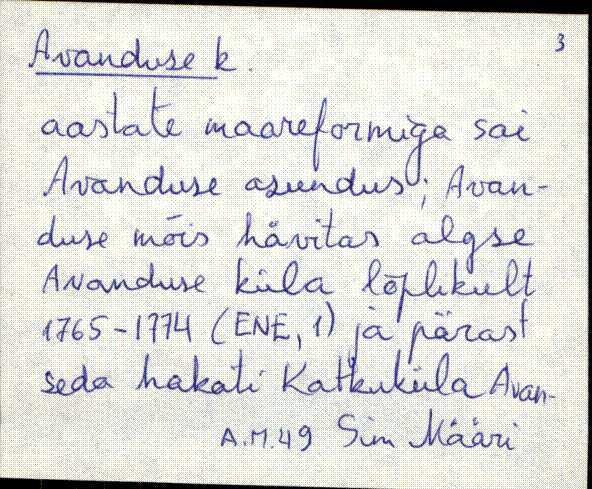 3
Avanduse k.
aastate maareformiga sai
Avanduse asundus; Avan-
duse mõis hävitas algse
Avanduse küla lõplikult
1765-1774 (ENE, 1) ja pärast
seda hakati Katkuküla Avan-
A.M.49 Sim Määri